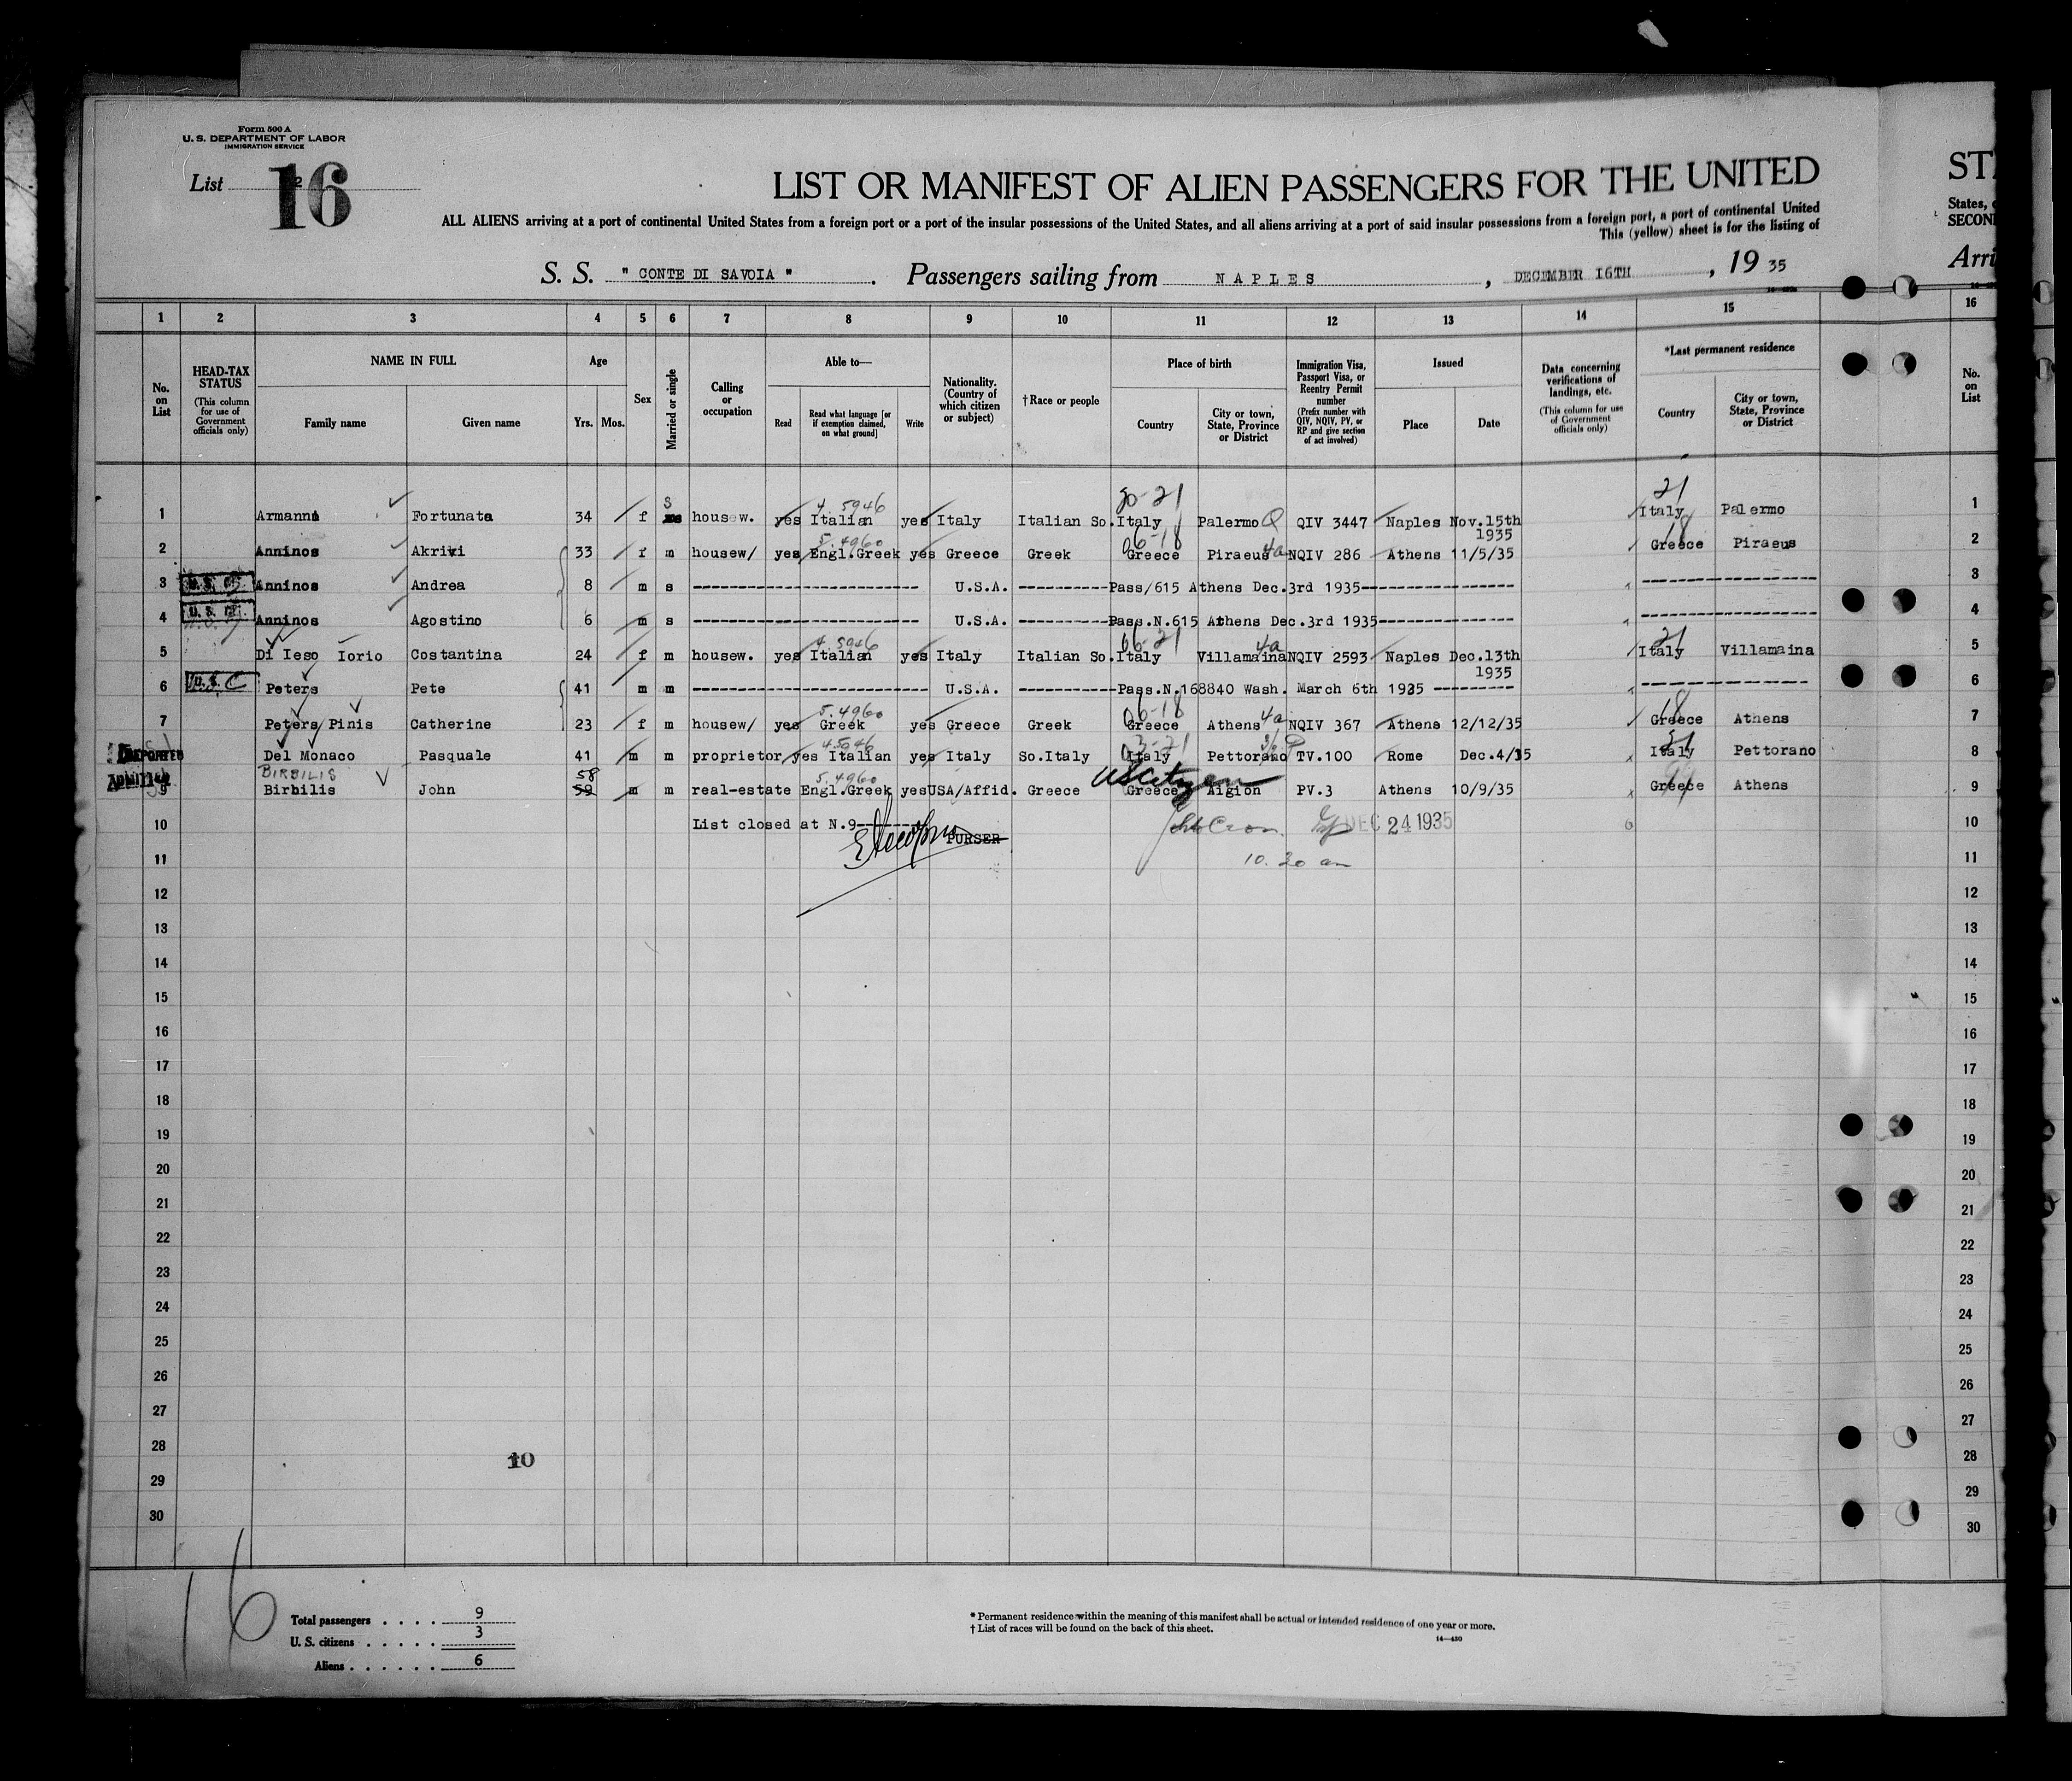 Form 500 A
U. S. DEPARTMENT OF LABOR
IMMIGRATION SERVICE
List 16
LIST OR MANIFEST OF ALIEN PASSENGERS FOR THE UNITED
ALL ALIENS arriving at a port of continental United States from a foreign port or a port of the insular possessions of the United States, and all aliens arriving at a port of said insular possessions from a foreign port, a port of continental United
This (yellow) sheet is for the listing of
S. S. " CONTE DI SAVOIA ". Passengers sailing from NAPLES, DECEMBER 16TH, 1935
STA
States, o
SECON
Arri
1 2 3 4 5 6 7 8 9 10 11 12 13 14 15 16
No. on List
HEAD-TAX STATUS (This column for use of Government officials only)
NAME IN FULL
Family name Given name
Age
Yrs. Mos.
Sex
Married or single
Calling or occupation
Able to—
Read
Read what language [or if exemption claimed, on what ground]
Write
Nationality. (Country of which citizen or subject)
†Race or people
Place of birth
Country
City or town, State, Province or District
Immigration Visa, Passport Visa, or Reentry Permit number (Prefix number with QIV, NQIV, PV, or RP and give section of act involved)
Issued
Place Date
Data concerning verifications of landings, etc. (This column for use of Government officials only)
*Last permanent residence
Country
City or town, State, Province or District
No. on List
4.5946 20-21 21
1 Armanna Fortunata 34 f s housew. yes Italian yes Italy Italian So. Italy Palermo Q QIV 3447 Naples Nov.15th 1935 Italy Palermo 1
5.4960 06-18 18
2 Anninos Akrivi 33 f m housew/ yes Engl.Greek yes Greece Greek Greece Piraeus 4a NQIV 286 Athens 11/5/35 Greece Piraeus 2
3 U.S.C. Anninos Andrea 8 m s U.S.A. Pass/615 Athens Dec.3rd 1935 3
4 U.S.C. Anninos Agostino 6 m s U.S.A. Pass.N.615 Athens Dec.3rd 1935 4
4.5946 06-21 21
5 Di Ieso Iorio Costantina 24 f m housew. yes Italian yes Italy Italian So. Italy Villamaina 4a NQIV 2593 Naples Dec.13th 1935 Italy Villamaina 5
6 U.S.C Peters Pete 41 m m U.S.A. Pass.N.168840 Wash. March 6th 1935 6
5.4960 06-18 18
7 Peters/Pinis Catherine 23 f m housew/ yes Greek yes Greece Greek Greece Athens 4a NQIV 367 Athens 12/12/35 Greece Athens 7
DEPORTED
8 Del Monaco Pasquale 41 m m proprietor yes Italian yes Italy So.Italy Italy Pettorano TV.100 Rome Dec.4/35 Italy Pettorano 8
BIRBILIS 58 5.4960 US Citizen 99
9 Birbilis John 59 m m real-estate Engl.Greek yes USA/Affid. Greece Greece Aigion PV.3 Athens 10/9/35 Greece Athens 9
10 List closed at N.9 DEC 24 1935 10
PURSER
11 10.20 am 11
12 12
13 13
14 14
15 15
16 16
17 17
18 18
19 19
20 20
21 21
22 22
23 23
24 24
25 25
26 26
27 27
28 10 28
29 29
30 30
16
Total passengers . . . . 9
U. S. citizens . . . . . 3
Aliens . . . . . . 6
* Permanent residence within the meaning of this manifest shall be actual or intended residence of one year or more.
† List of races will be found on the back of this sheet.
14—430